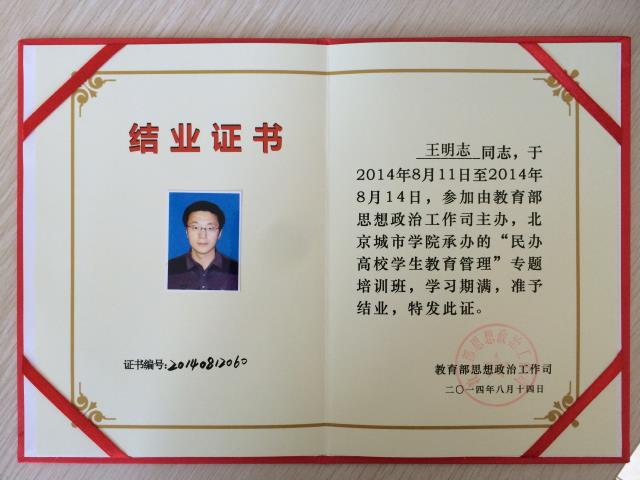 结业证书
证书编号:20140812060
王明志 同志，于
2014年8月11日至2014年
8月14日，参加由教育部
思想政治工作司主办，北
京城市学院承办的“民办
高校学生教育管理”专题
培训班，学习期满，准予
结业，特发此证。
教育部思想政治工作司
二〇一四年八月十四日